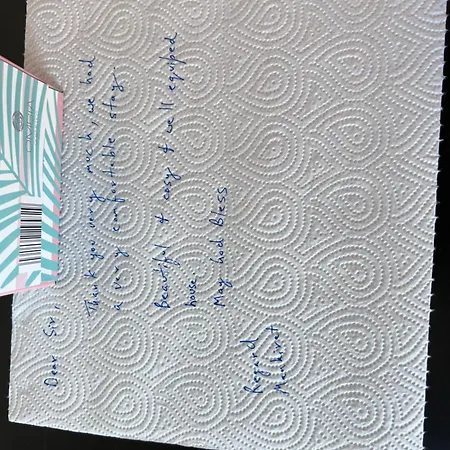 Dear Sir,
Thank you very much, we had
a very comfortable stay.
Beautiful & cosy & well equiped
house
May God Bless
Regard